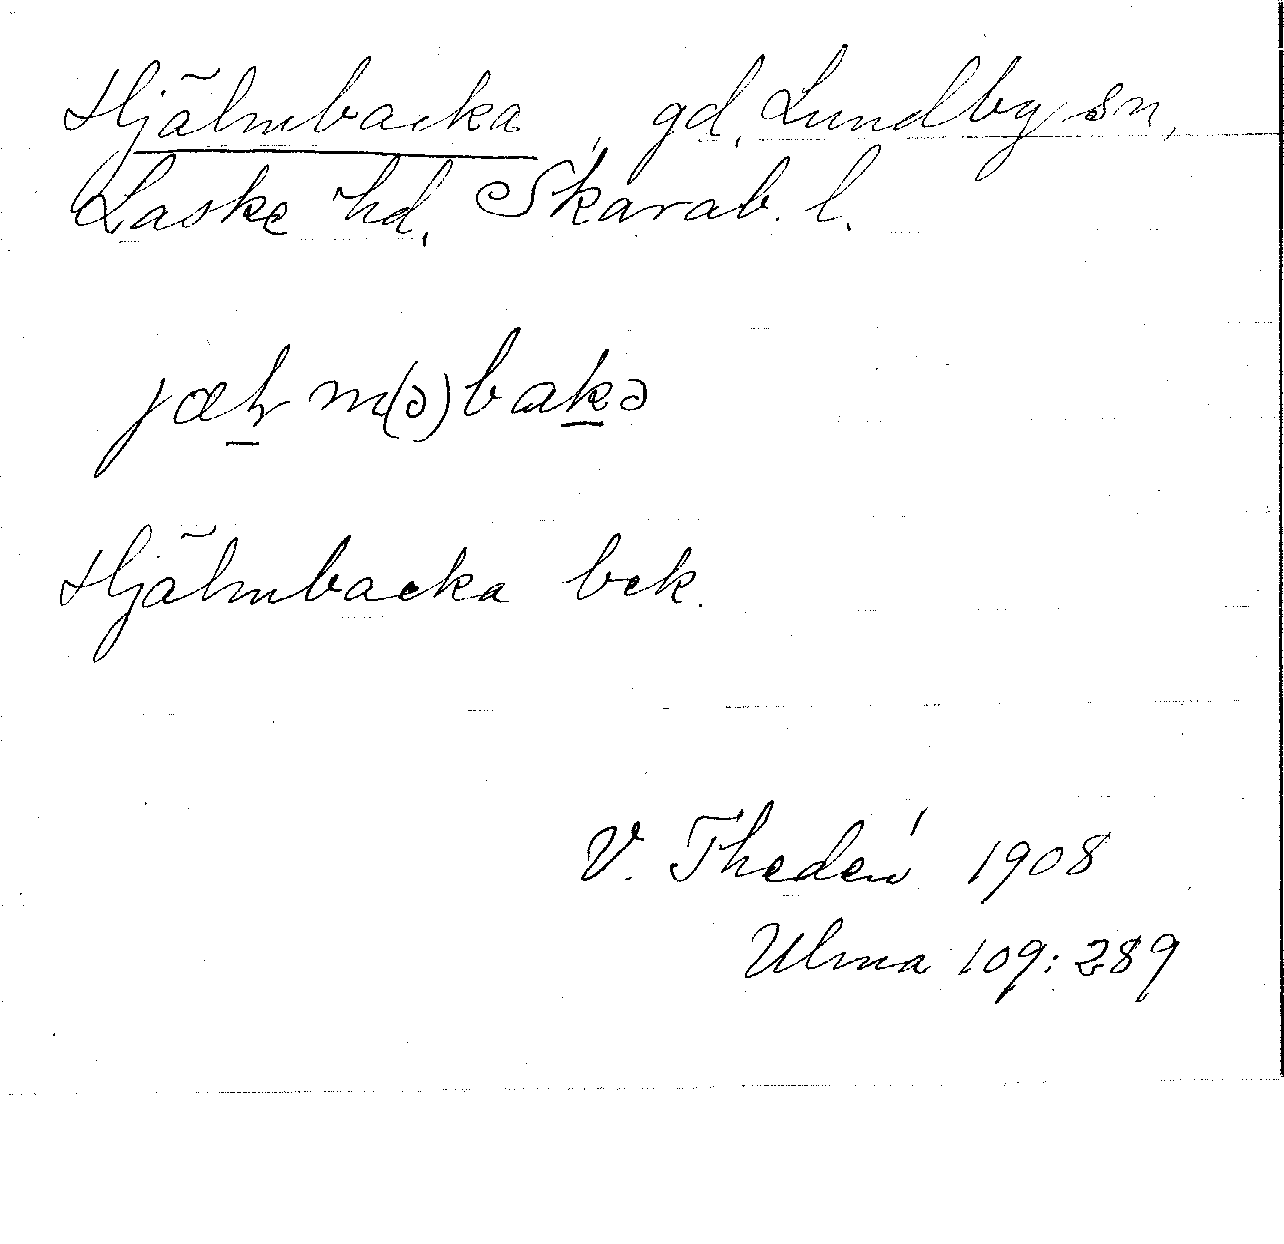 Hjälmbacka, gd, Lundby sn,
Laske hd, Skarab. l.
jæɫm(ə)bakə
Hjälmbacka bek.
V. Thedén 1908
Ulma 109:289